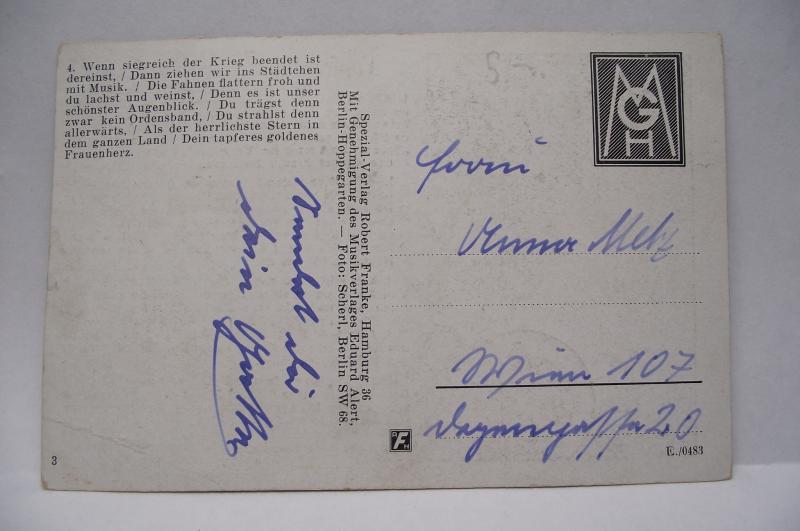 4. Wenn siegreich der Krieg beendet ist
dereinst, / Dann ziehen wir ins Städtchen
mit Musik. / Die Fahnen flattern froh und
du lachst und weinst, / Denn es ist unser
schönster Augenblick. / Du trägst denn
zwar kein Ordensband, / Du strahlst denn
allerwärts, / Als der herrlichste Stern in
dem ganzen Land / Dein tapferes goldenes
Frauenherz.
3
Spezial-Verlag Robert Franke, Hamburg 36
Mit Genehmigung des Musikverlages Eduard Alert,
Berlin-Hoppegarten. — Foto: Scherl, Berlin SW 68.
MGH
Frau
Metz
Wien 107
20
E./0483